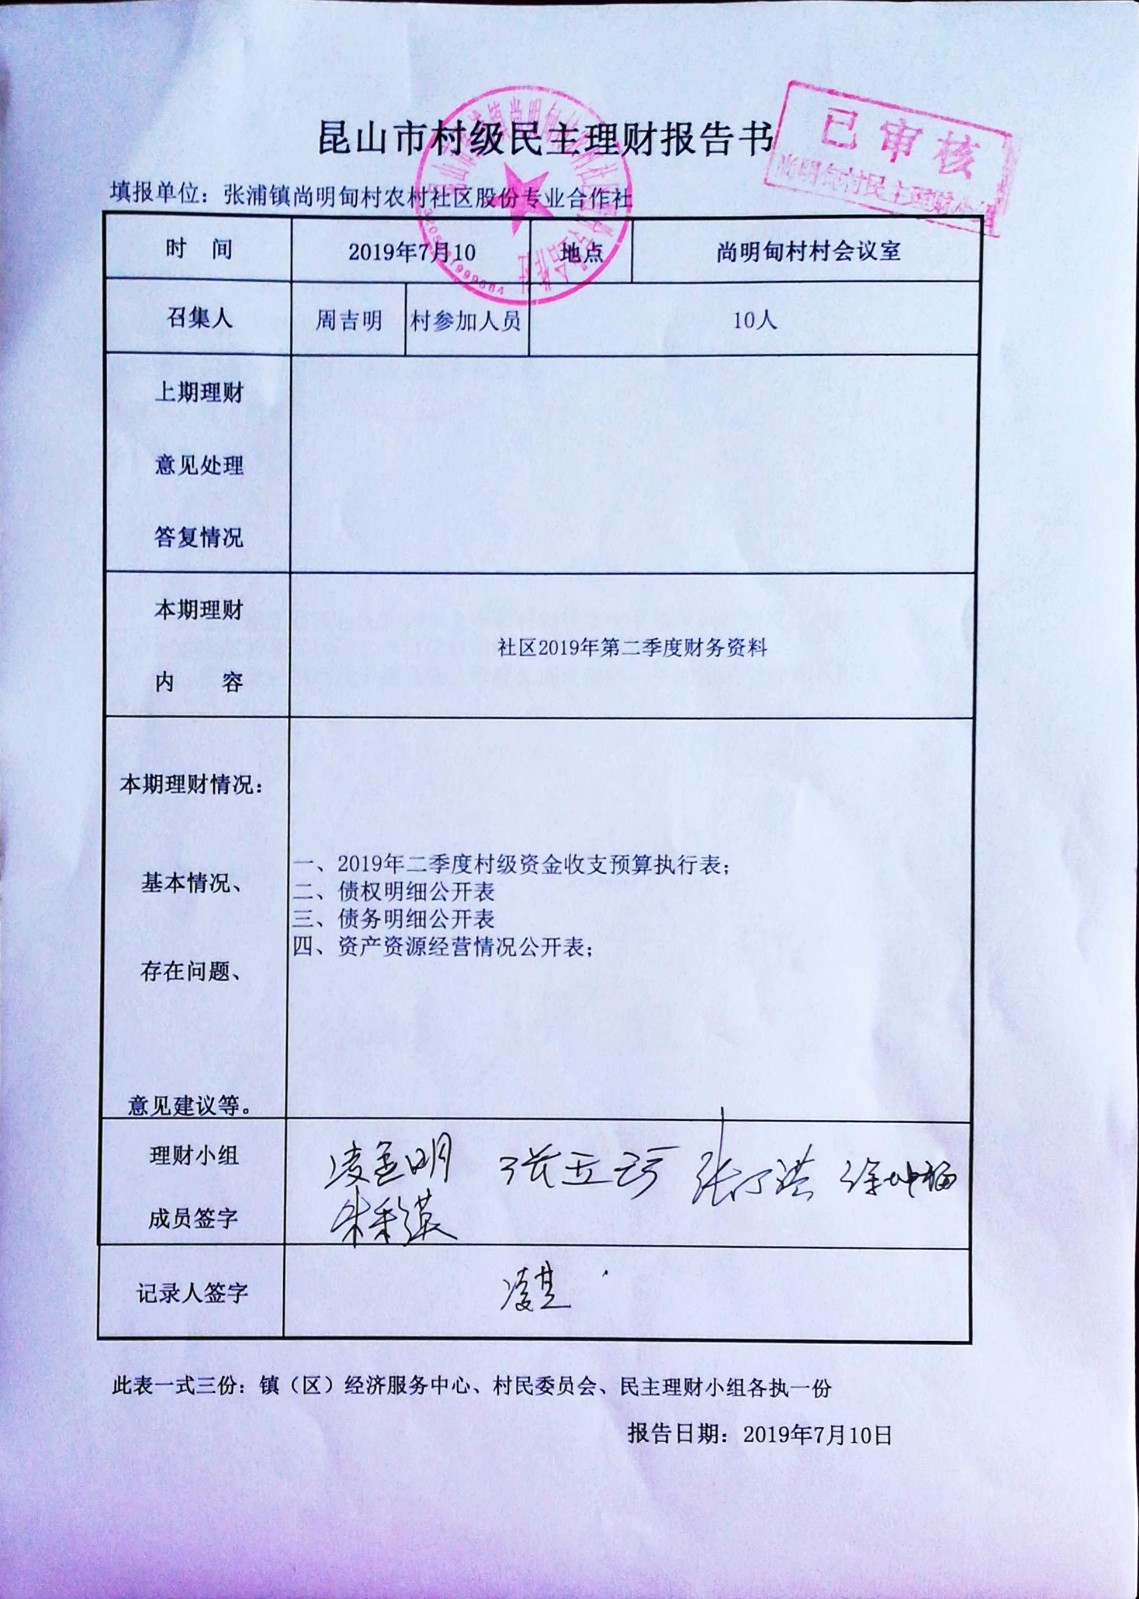 昆山市村级民主理财报告书
已审核
尚明甸村民主理财小组
填报单位：张浦镇尚明甸村农村社区股份专业合作社
时 间 2019年7月10 地点 尚明甸村村会议室
召集人 周吉明 村参加人员 10人
上期理财
意见处理
答复情况
本期理财
内 容
社区2019年第二季度财务资料
本期理财情况：
基本情况、
存在问题、
意见建议等。
一、2019年二季度村级资金收支预算执行表；
二、债权明细公开表
三、债务明细公开表
四、资产资源经营情况公开表；
理财小组
成员签字
凌金明
朱彩英
记录人签字
此表一式三份：镇（区）经济服务中心、村民委员会、民主理财小组各执一份
报告日期：2019年7月10日